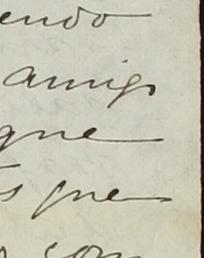 endo
amigo
que
s que
con